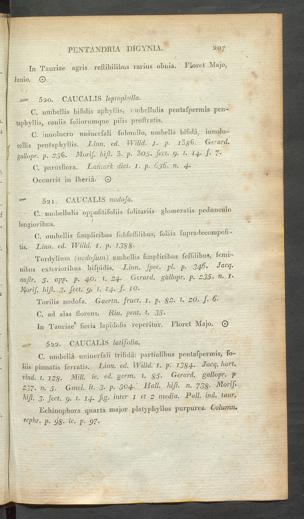 PENTANDRIA DIGYNIA. 207
In Tauriae agris restibilibus rarius obuia. Floret Majo,
Junio. ☉
520. CAUCALIS leptophylla.
C. umbellis bifidis aphyllis, umbellulis pentaspermis pen-
taphyllis, caulis foliorumque pilis prostratis.
C. involucro universali subnullo, umbella bifida, involu-
cellis pentaphyllis. Linn. ed. Willd. 1. p. 1386. Gerard.
gallopr. p. 236. Moris. hist. 3. p. 308. sect. 9. t. 14. f. 7.
C. parviflora. Lamarck dict. 1. p. 656. n. 4.
Occurrit in Iberiâ. ☉
521. CAUCALIS nodosa.
C. umbellulis oppositifoliis solitariis glomeratis pedunculo
longioribus.
C. umbellis simplicibus subsessilibus, foliis supradecomposi-
tis. Linn. ed. Willd. 1. p. 1388.
Tordylium (nodosum) umbellis simplicibus sessilibus, semi-
nibus exterioribus hispidis. Linn. spec. pl. p. 346. Jacq.
austr. 5. app. p. 40. t. 24. Gerard. gallopr. p. 235. n. 1.
Moris. hist. 3. sect. 9. t. 14. f. 10.
Torilis nodosa. Gaertn. fruct. 1. p. 82. t. 20. f. 6.
C. ad alas florens. Riv. pent. t. 35.
In Tauriae locis lapidosis reperitur. Floret Majo. ☉
522. CAUCALIS latifolia.
C. umbellâ universali trifidâ: partialibus pentaspermis, fo-
liis pinnatis serratis. Linn. ed. Willd. 1. p. 1384. Jacq. hort.
vind. t. 128. Mill. ic. ed. germ. t. 85. Gerard. gallopr. p
237. n. 5. Gmel. it. 3. p. 304. Hall. hist. n. 738. Moris.
hist. 3. sect. 9. t. 14. fig. inter 1 et 2 media. Pall. ind. taur.
Echinophora quarta major platyphyllos purpurea. Column.
ecphr. p. 98. ic. p. 97.